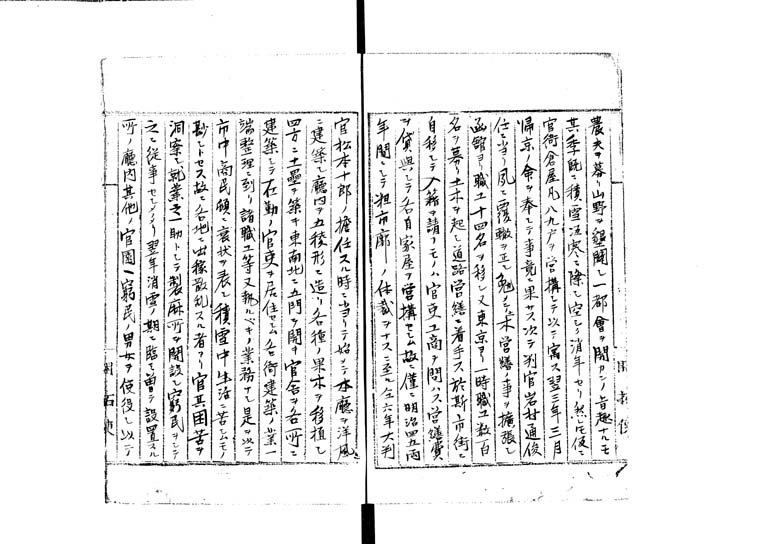 農夫ヲ募リ山野ヲ鑿開シ一都會ヲ開カンノ旨趣ナルモ
其季既ニ積雪冱寒ニ際シ空シク消年セリ然レ𪜈僅ニ
官衙倉屋凡八九戸ヲ営構シテ以テ寓ス翌三年三月
帰京ノ命ヲ奉シテ事竟ニ果サス次テ判官岩村通俊
任ニ当リ夙ニ覆轍ヲ正シ勉メテ土木営繕ノ事ヲ擴張シ
函館ヨリ職工十四名ヲ移シ又東京ヨリ一時職工数百
名ヲ募リ土木ヲ起シ道路営繕ニ着手ス於斯市街ニ
自移シテ入籍ヲ請フモノハ官吏工商ヲ問ハス営繕費
ヲ貸與シテ各自家屋ヲ営構セシム故ニ僅ニ明治四五両
年間ニシテ粗市廓ノ体裁ヲナスニ至ル仝六年大判
官松本十郎ノ擔任スル時ニ当リテ始テ本廳ヲ洋風
ニ建築シ廳内ヲ五稜形ニ造リ各種ノ果木ヲ移植シ
四方ニ土壘ヲ築キ東南北ニ五門ヲ開キ官舎ヲ各所ニ
建築シテ在勤ノ官吏ヲ居住セシム各衙建築ノ業一
端整理ニ到リ諸職工等又執ルベキノ業務ナシ是ヲ以テ
市中商民頓ニ衰状ヲ表シ積雪中生活ニ苦シムモノ
尠シトセス故ニ各地ニ出稼散乱スル者アリ官其困苦ヲ
洞察シ就業ノ一助トシテ製麻所ヲ開設シ窮民ヲシテ
之ニ従事セシメリ翌年消雪ノ期ニ臨ミ曽テ設置スル
所ノ廳内其他ノ官園ヘ窮民ノ男女ヲ使役シ以テ
開拓使
開拓使